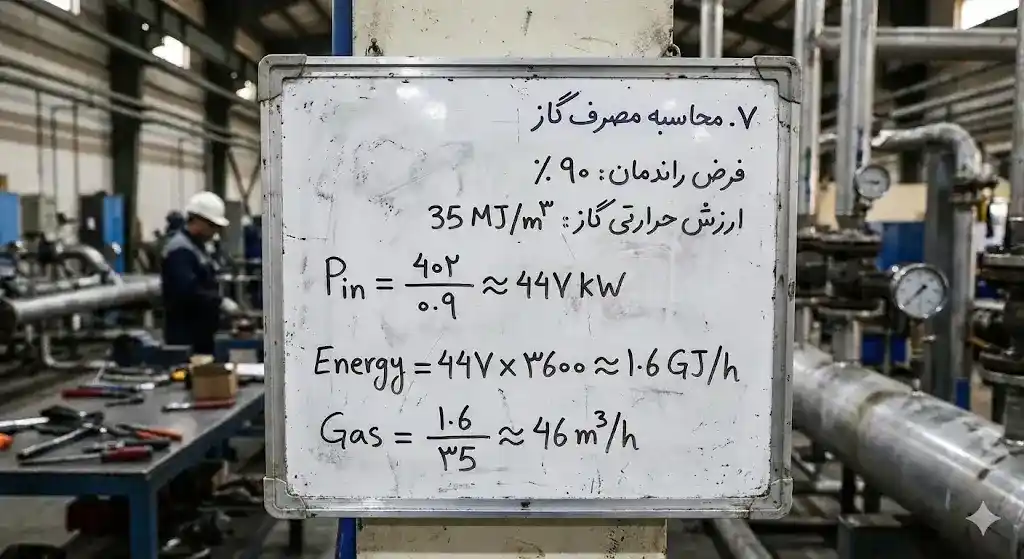 ۷. محاسبه مصرف گاز
فرض راندمان: ۹۰ %
ارزش حرارتی گاز: 35 MJ/m³
Pin = 4۰۲ / ۰.9 ≈ 44۷ kW
Energy = 44۷ × ۳6۰۰ ≈ 1.6 GJ/h
Gas = 1.6 / ۳5 ≈ 46 m³/h